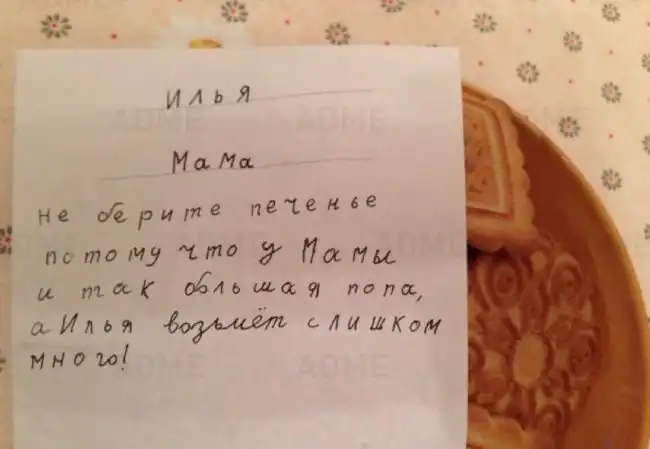 Илья
Мама
не берите печенье
потому что у Мамы
и так большая попа,
а Илья возьмёт слишком
много!
ADME ADME
ADME ADME
ADME ADME